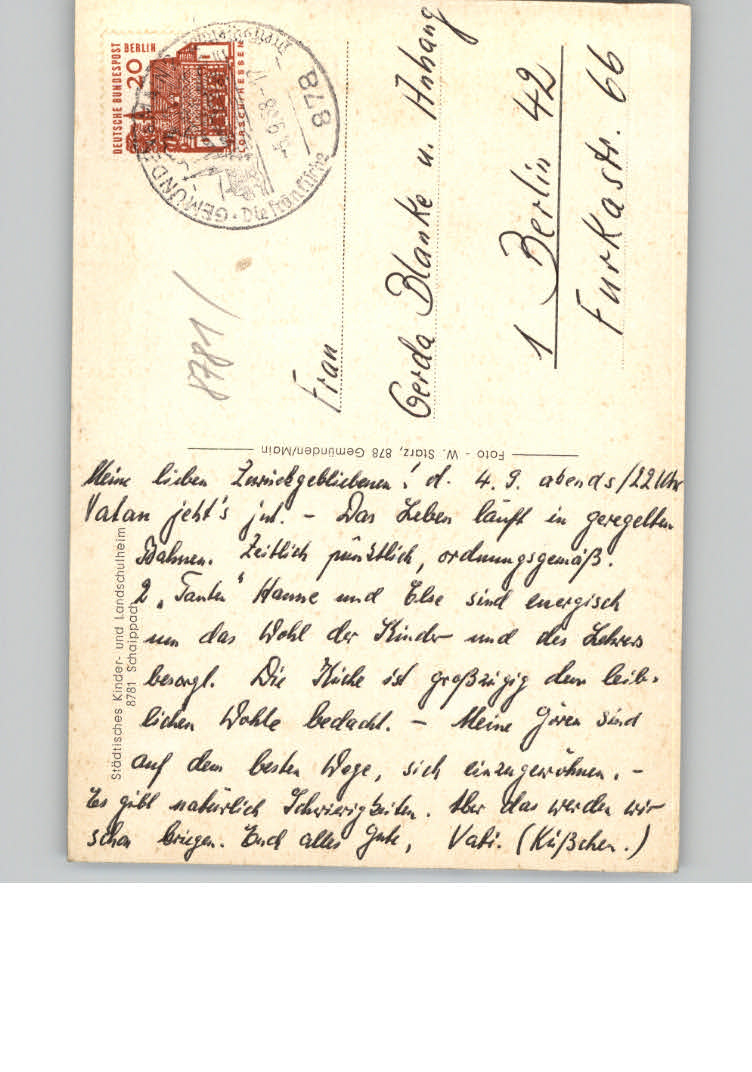 DEUTSCHE BUNDESPOST BERLIN
20
LORSCH/HESSEN
GEMÜNDEN
878
8781
Frau
Gerda Blanke u. Anhang
1 Berlin 42
Furkastr. 66
Foto - W. Starz, 878 Gemünden/Main
Städtisches Kinder- und Landschulheim
8781 Schaippach
Meine lieben Zurückgebliebenen! d. 4. 9. abends/22 Uhr
Vatan jeht's jut. - Das Leben läuft in geregelten
Bahnen. Zeitlich pünktlich, ordnungsgemäß.
2 „Tanten" Hanne und Else sind energisch
um das Wohl der Kinder und des Lehrers
besorgt. Die Küche ist großzügig dem leib-
lichen Wohle bedacht. - Meine Gören sind
auf dem besten Wege, sich einzugewöhnen. -
Es gibt natürlich Schwierigkeiten. Aber das werden wir
schon kriegen. Euch alles Gute, Vati. (Küßchen.)